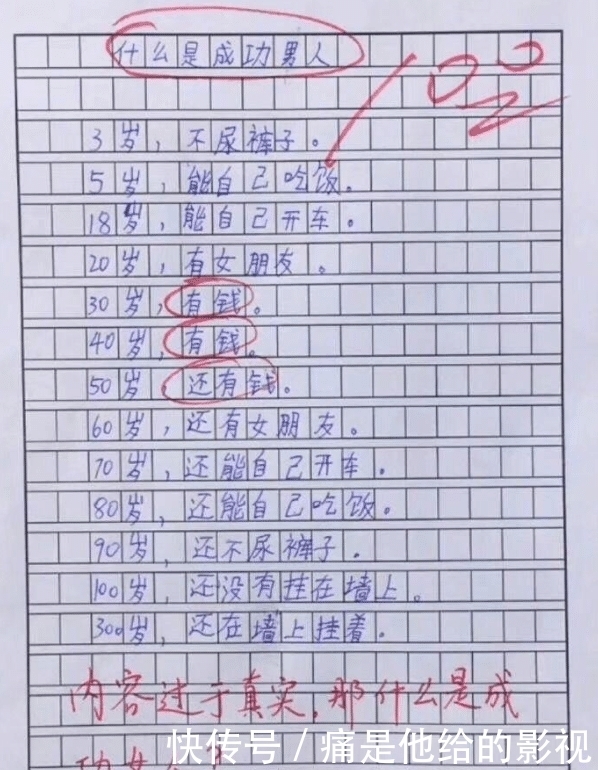 什么是成功男人
100
3岁，不尿裤子。
5岁，能自己吃饭。
18岁，能自己开车。
20岁，有女朋友。
30岁，有钱。
40岁，有钱。
50岁，还有钱。
60岁，还有女朋友。
70岁，还能自己开车。
80岁，还能自己吃饭。
90岁，还不尿裤子。
100岁，还没有挂在墙上。
300岁，还在墙上挂着。
内容过于真实，那什么是成
功女
快传号 / 痛是他给的影视